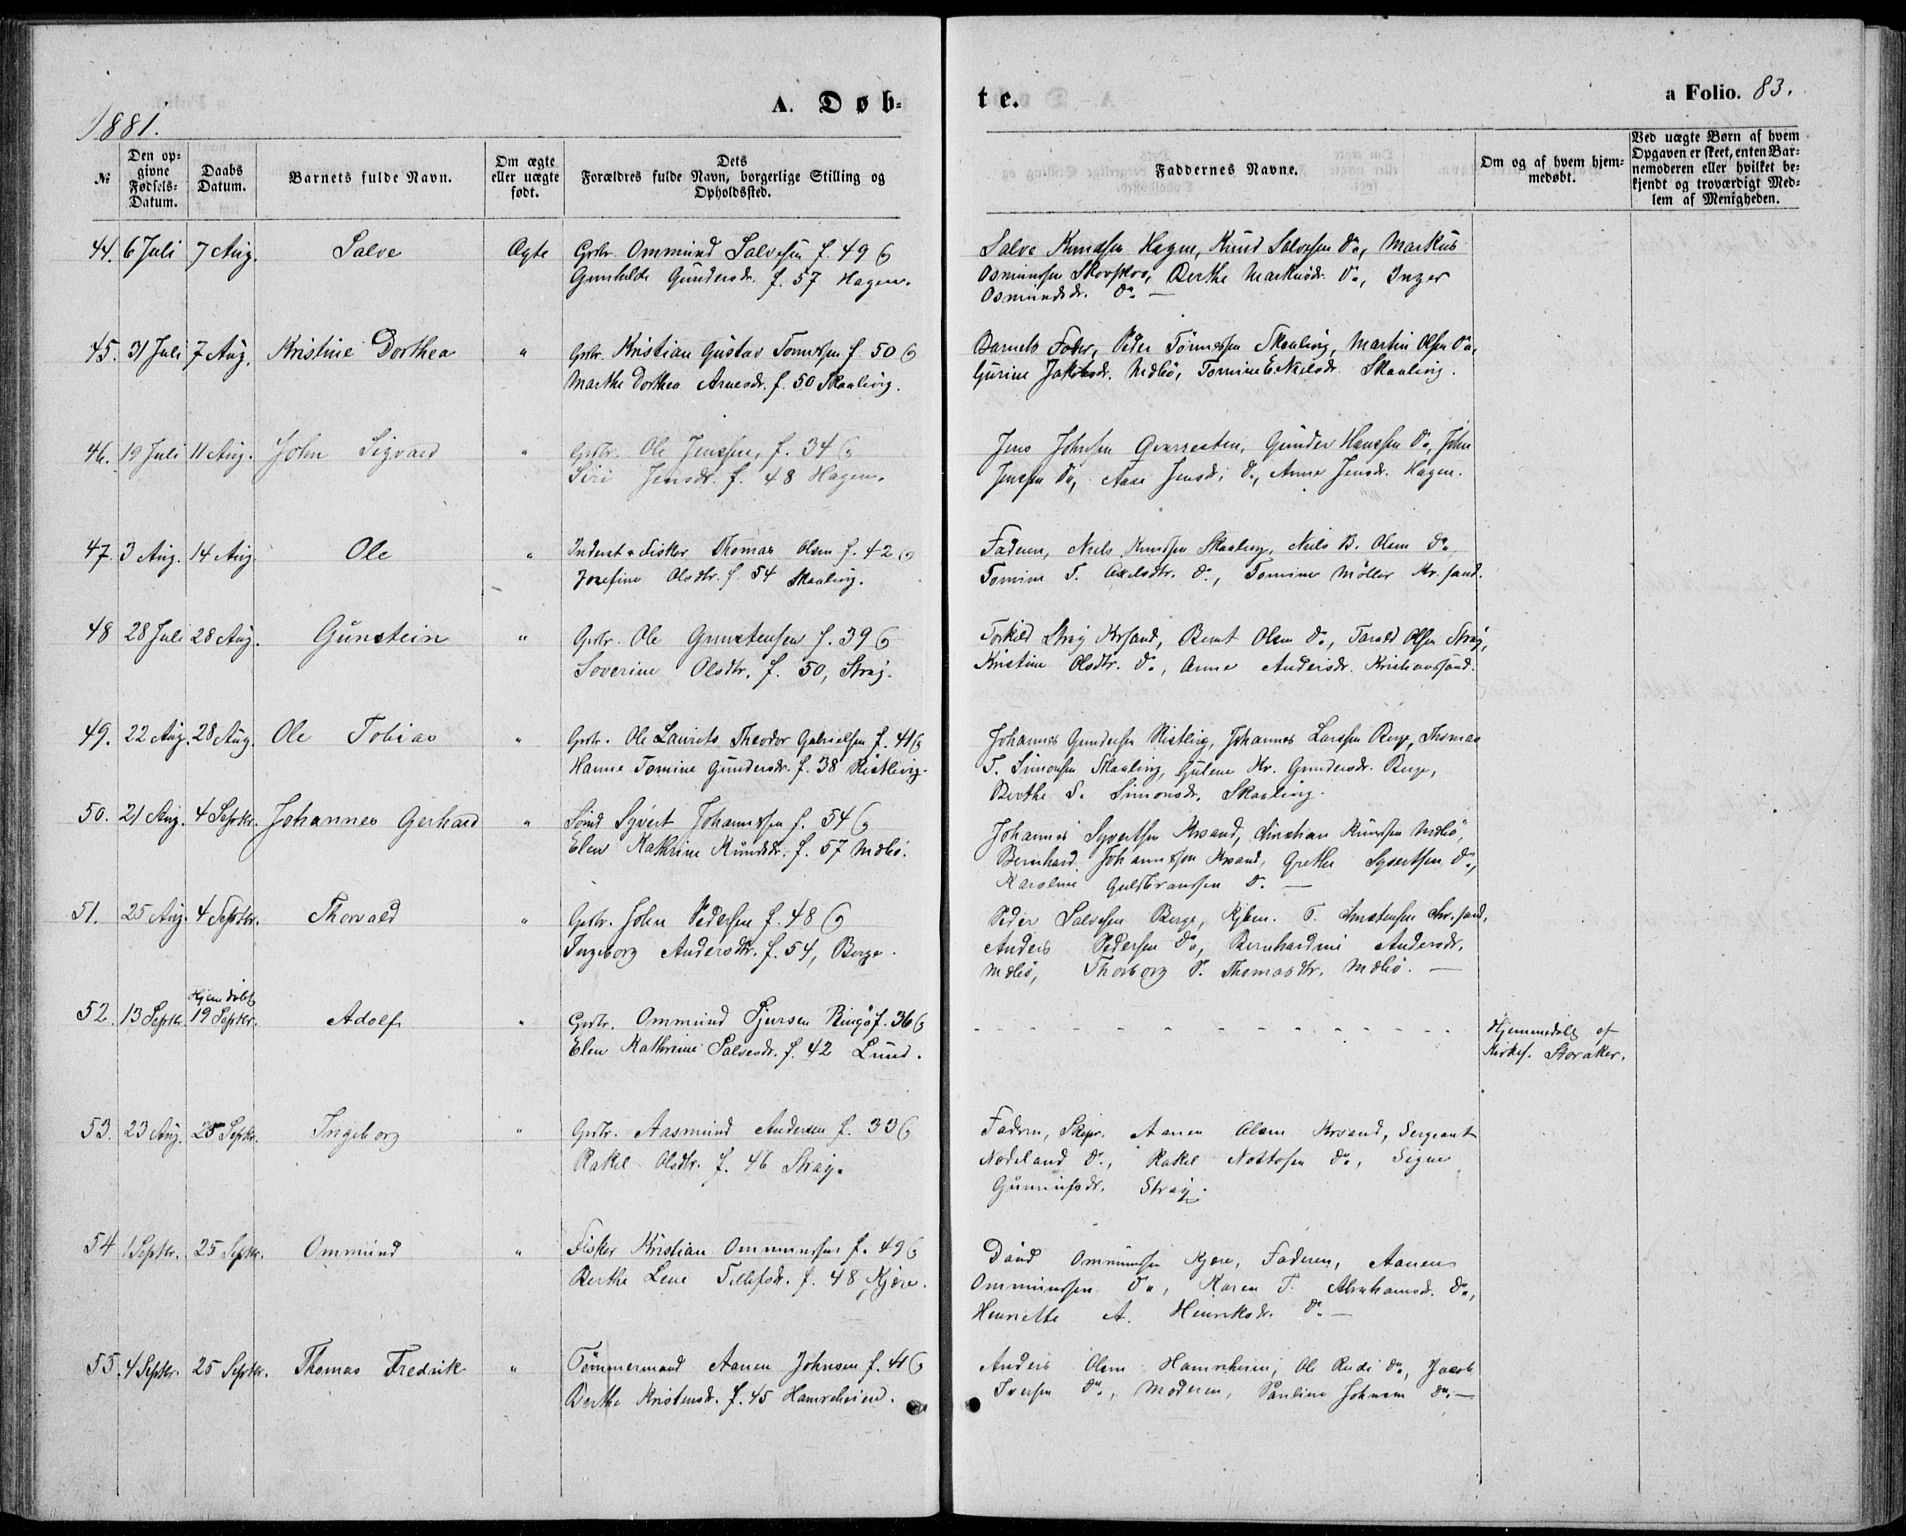 1881.
A. Døb=
te.
a Folio. 83.
№
Den op=
givne
Fødsels=
Datum.
Daabs
Datum.
Barnets fulde Navn.
Om ægte
eller uægte
født.
Dets
Forældres fulde Navn, borgerlige Stilling og
Opholdssted.
Faddernes Navne.
Om og af hvem hjem=
medøbt.
Ved uægte Børn af hvem
Opgaven er skeet, enten Bar=
nemoderen eller hvilket be=
kjendt og troværdigt Med=
lem af Menigheden.
44. 6 Juli 7 Aug. Salve Ægte Grbr. Ommund Salvesen f. 49 &
Gunhilde Gundersdr. f. 57 Hagen.
Salve Knudsen Hagen, Knud Salvesen Do, Markus
Osmundsen Skovskov, Berthe Markusdr. Do, Inger
Osmundsdr. Do —
45. 31 Juli 7 Aug. Kristine Dorthea " Grbr. Kristian Gustav Tomessen f. 50 &
Marthe Dorthea Arnesdr. f. 50 Skaalevig.
Barnets Fader, Peder Tönnessen Skaalevig, Martin Olsen Do,
Gurine Jakobsdr. Mæbö, Tomine E. Nielsdr. Skaalevig.
46. 19 Juli 11 Aug. John Sigvard " Grbr. Ole Jenssen, f. 34 &
Siri Jensdr. f. 48 Hagen.
Jens Johnsen Qvarresten, Gunder Hanssen Do, John
Jenssen Do, Aase Jensdr. Do, Anne Jensdr. Hagen.
47. 3 Aug. 14 Aug Ole " Inderst & Fisker Thomas Olsen f. 42 &
Josefine Olsdtr. f. 54 Skaalevig.
Faderen, Niels Knudsen Skaalevig, Niels B. Olsen Do,
Tomine T. Axelsdtr. Do, Tomine Möller Kr.sand.
48 28 Juli 28 Aug. Gunstein " Grbr. Ole Gunstensen f. 39 &
Soverine Olsdtr. f. 50, Stray.
Torkild Stray Krsand, Bernt Olsen Do, Tarald Olsen Stray,
Kristine Olsdtr. Do, Anne Andersdr. Kristianssand.
49. 22 Aug. 28 Aug. Ole Tobias " Grbr. Ole Laurits Theodor Gabrielsen f. 41 &
Hanne Tomine Gundersdr. f. 38 Kistevig.
Johannes Gundersen Kistevig, Johannes Larssen Berge, Thomas
T. Simonsen Skaalevig, Gulene Kr. Gundersdr. Berge,
Berthe S. Simonsdr. Skaalevig.
50. 21 Aug. 4 Septbr. Johannes Gerhard " Smed Syvert Johannessen f. 54 &
Elen Kathrine Knudsdr. f. 57 Mæbö.
Johannes Syvertsen Krsand, Kristian Knudsen Mæbö,
Bernhard Johannessen Krsand, Grethe Syvertsen Do,
Karoline Guldbranssen Do. —
51. 25 Aug. 4 Septbr. Thorvald " Grbr. John Pedersen f. 48 &
Ingeborg Andersdtr. f. 54, Berge.
Peder Salvesen Berge, Kjbm. T. Anstensen Chr.sand,
Anders Pedersen Do, Bernhardine Andersdr.
Mæbö, Thorborg P. Thomasdtr. Mæbö. —
52. 13 Septbr. Hjemdöbt
19 Septbr. Adolf " Grbr. Ommund Sjursen Ringö f. 36 &
Elen Kathrine Salvesdr. f. 42 Lund.
- - - - - - - - - - - - - - -
Hjemmedöbt af
Kirkes. Storaker.
53. 23 Aug. 25 Septbr. Ingeborg " Grbr. Aasmund Andersen f. 33 &
Rakel Olsdtr. f. 46 Stray.
Fadren, Skipr. Aanen Olsen Krsand, Sergeant
Nodeland Do, Rakel Nottosen Do, Signe
Gunnufsdr. Stray.
54 1 Septbr. 25 Septbr. Ommund " Fisker Kristian Ommundsen f. 49 &
Berthe Lene Tellefsdr. f. 48 Kjære.
David Ommundsen Kjære, Faderen, Aanen
Ommundsen Do, Karen T. Abrahamsdr. Do,
Henriette A. Henriksdr. Do —
55. 4 Septbr. 25 Septbr. Thomas Fredrik " Tömmermand Aanen Johnsen f. 41 &
Berthe Kristensdr. f. 45 Hamreheien.
Anders Olsen Hamreheien, Ole Rudi Do, Jacob
Iversen Do, Moderen, Pauline Johnsen Do —